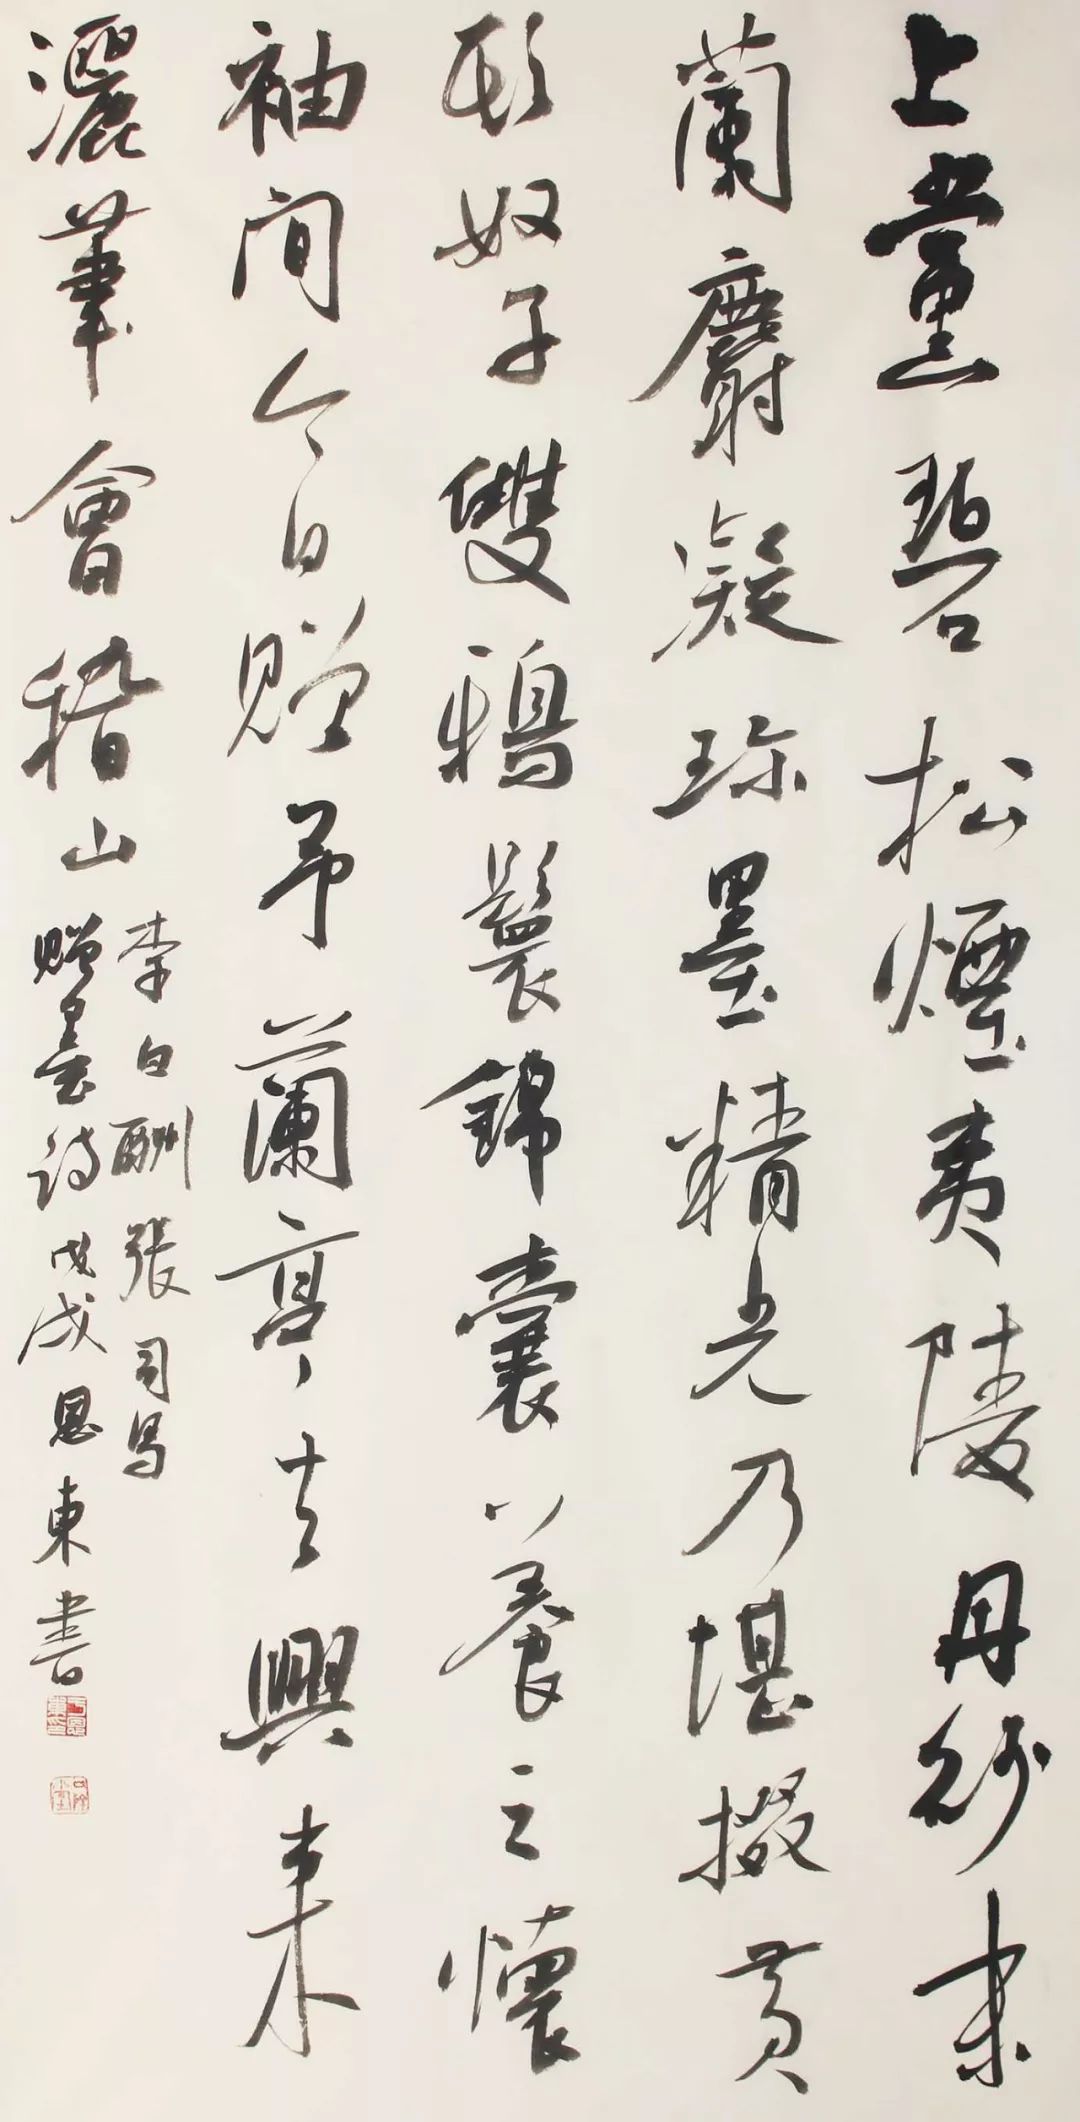 上黨碧松煙夷陵丹砂末
蘭麝凝珍墨精光乃堪掇黃
頭奴子雙鴉鬟錦囊養之懷
袖間今日贈予蘭亭去興來
灑筆會稽山
李白酬張司馬
贈墨詩戊戌恩東書